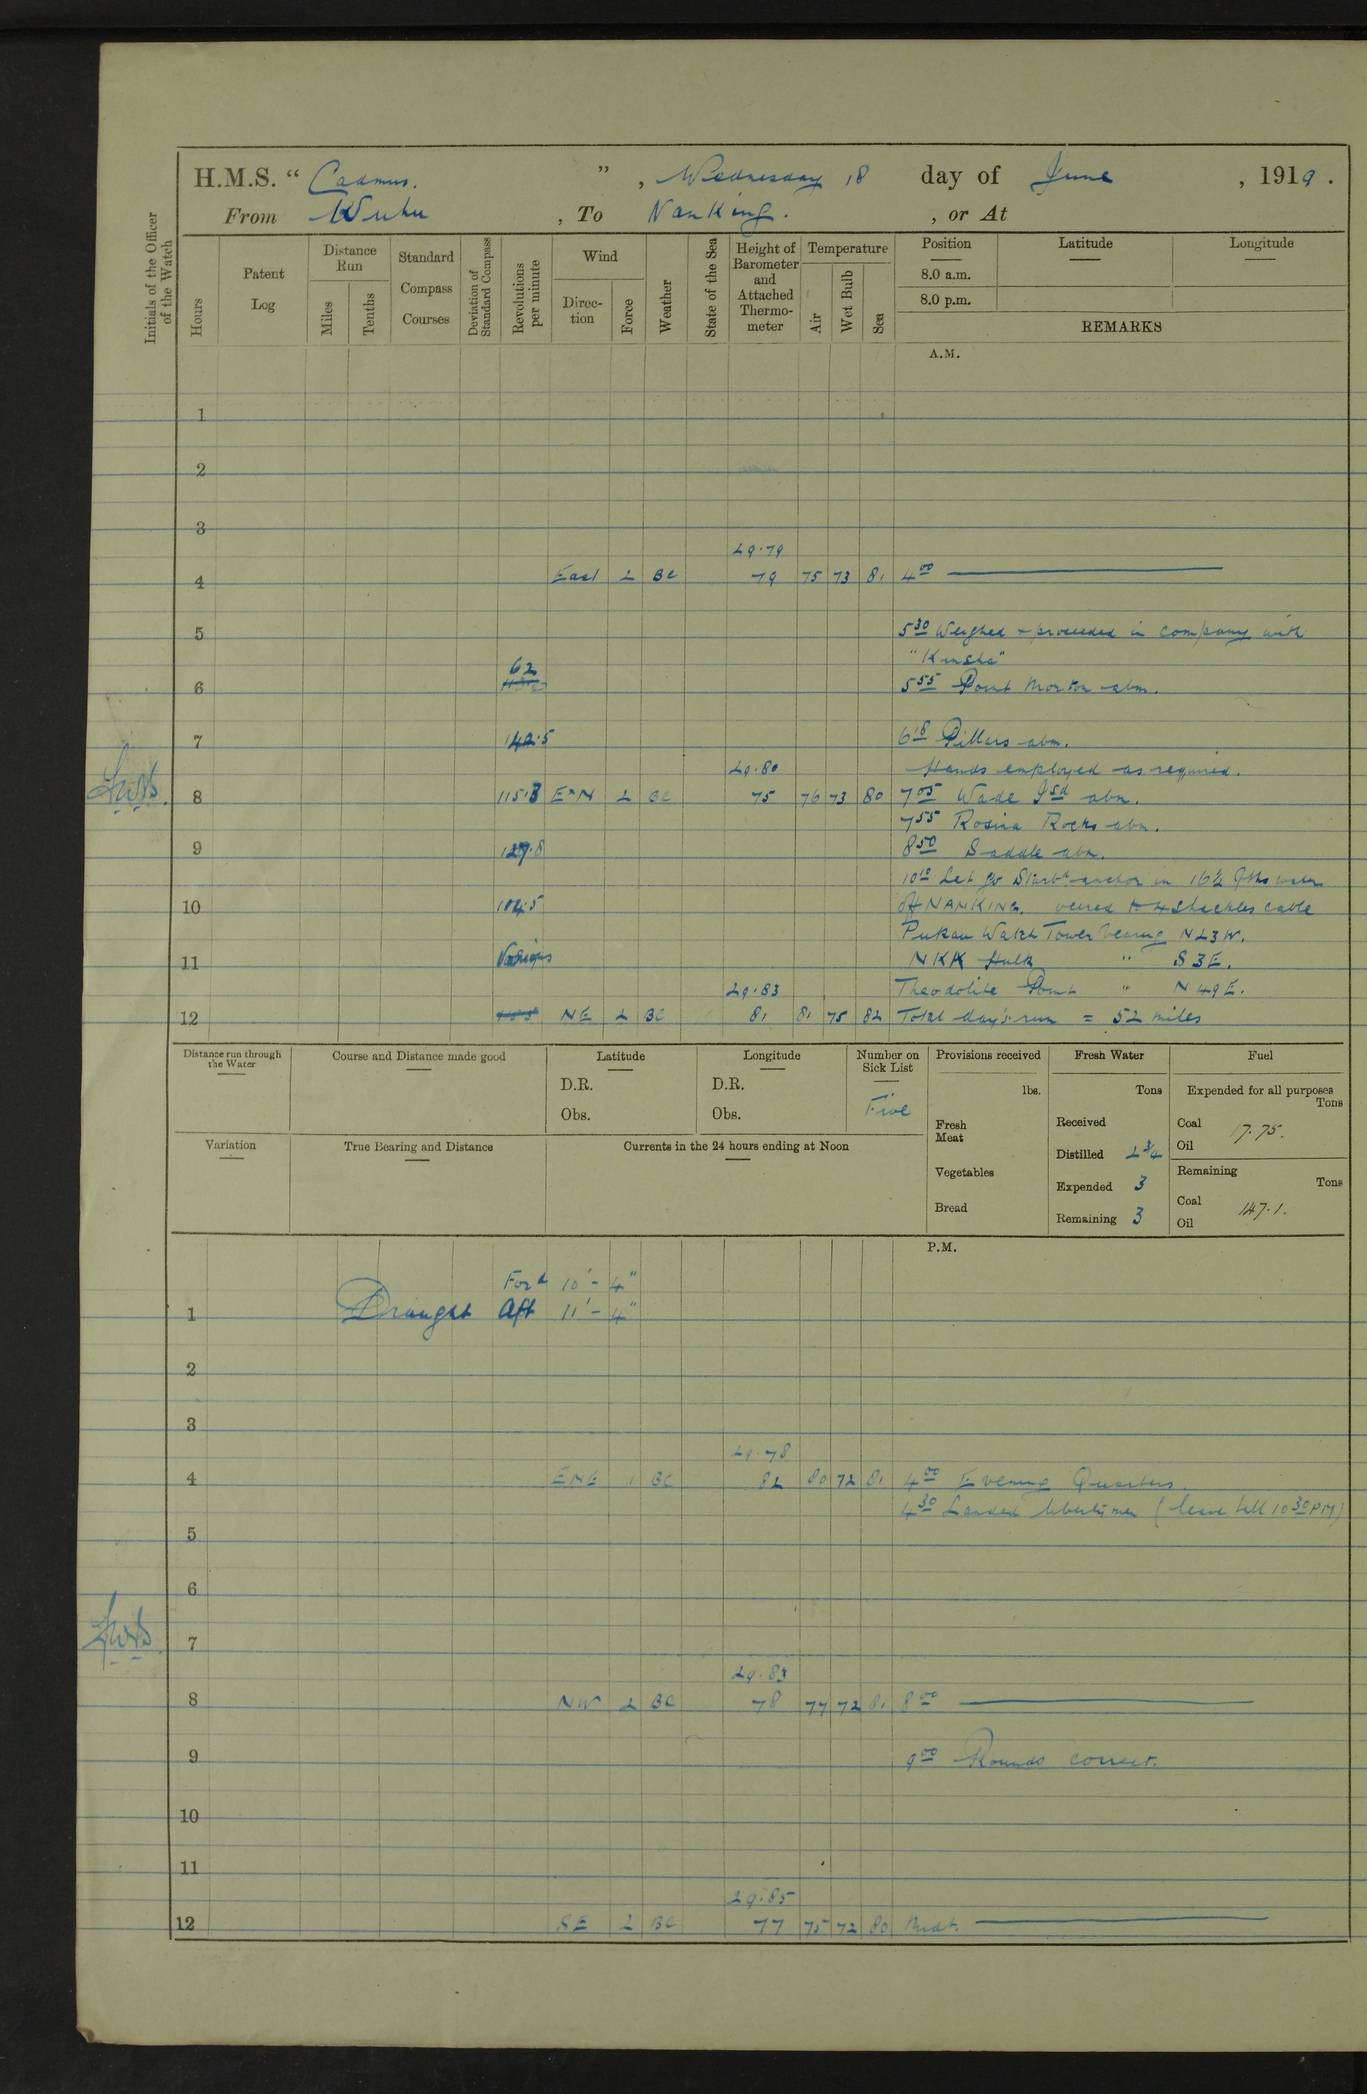 H.M.S. “ Cadmus. ” , Wednesday 18 day of June , 1919 .
From Wuhu , To Nanking. , or At
Initials of the Officer of the Watch
Hours
Patent Log
Distance Run
Miles
Tenths
Standard Compass Courses
Deviation of Standard Compass
Revolutions per minute
Wind
Direc- tion
Force
Weather
State of the Sea
Height of Barometer and Attached Thermo- meter
Temperature
Air
Wet Bulb
Sea
Position Latitude Longitude
8.0 a.m.
8.0 p.m.
REMARKS
A.M.
1
2
3
29.79
4 East 2 BC 79 75 73 81 4 00
5 5 30 Weighed + proceeded in company with
62 "Kinsha"
6 5 55 Point Morton abm.
7 142.5 6 18 Pillars abm.
29.80 Hands employed as required.
8 115.3 E×N 2 BC 75 76 73 80 7 05 Wade Isd abm.
7 55 Rosina Rocks abm.
9 127.8 8 50 Saddle abm.
10 10 Let go Starbd anchor in 16½ fths water
10 104.5 off NANKING. veered to 4 shackles cable
Pukau Watch Tower bearing N23W.
11 Various NKK Hulk " S3E.
29.83 Theodolite Point " N49E.
12 NE 2 BC 81 81 75 82 Total day's run = 52 miles
Distance run through the Water
Course and Distance made good
Latitude
D.R.
Obs.
Longitude
D.R.
Obs.
Number on Sick List
Five
Provisions received
lbs.
Fresh Meat
Vegetables
Bread
Fresh Water
Tons
Received
Distilled 2¾
Expended 3
Remaining 3
Fuel
Expended for all purposes
Tons
Coal 17.75.
Oil
Remaining
Tons
Coal 147.1.
Oil
Variation
True Bearing and Distance
Currents in the 24 hours ending at Noon
P.M.
Ford 10' - 4"
1 Draught Aft 11' - 4"
2
3
29.78
4 ENE 1 BC 82 80 72 81 4 00 Evening Quarters.
4 30 Landed libertymen (leave till 10 30 PM)
5
6
7
29.83
8 NW 2 BC 78 77 72 81 8 00
9 9 00 Rounds correct.
10
11
29.85
12 SE 2 BC 77 75 72 80 Midt.